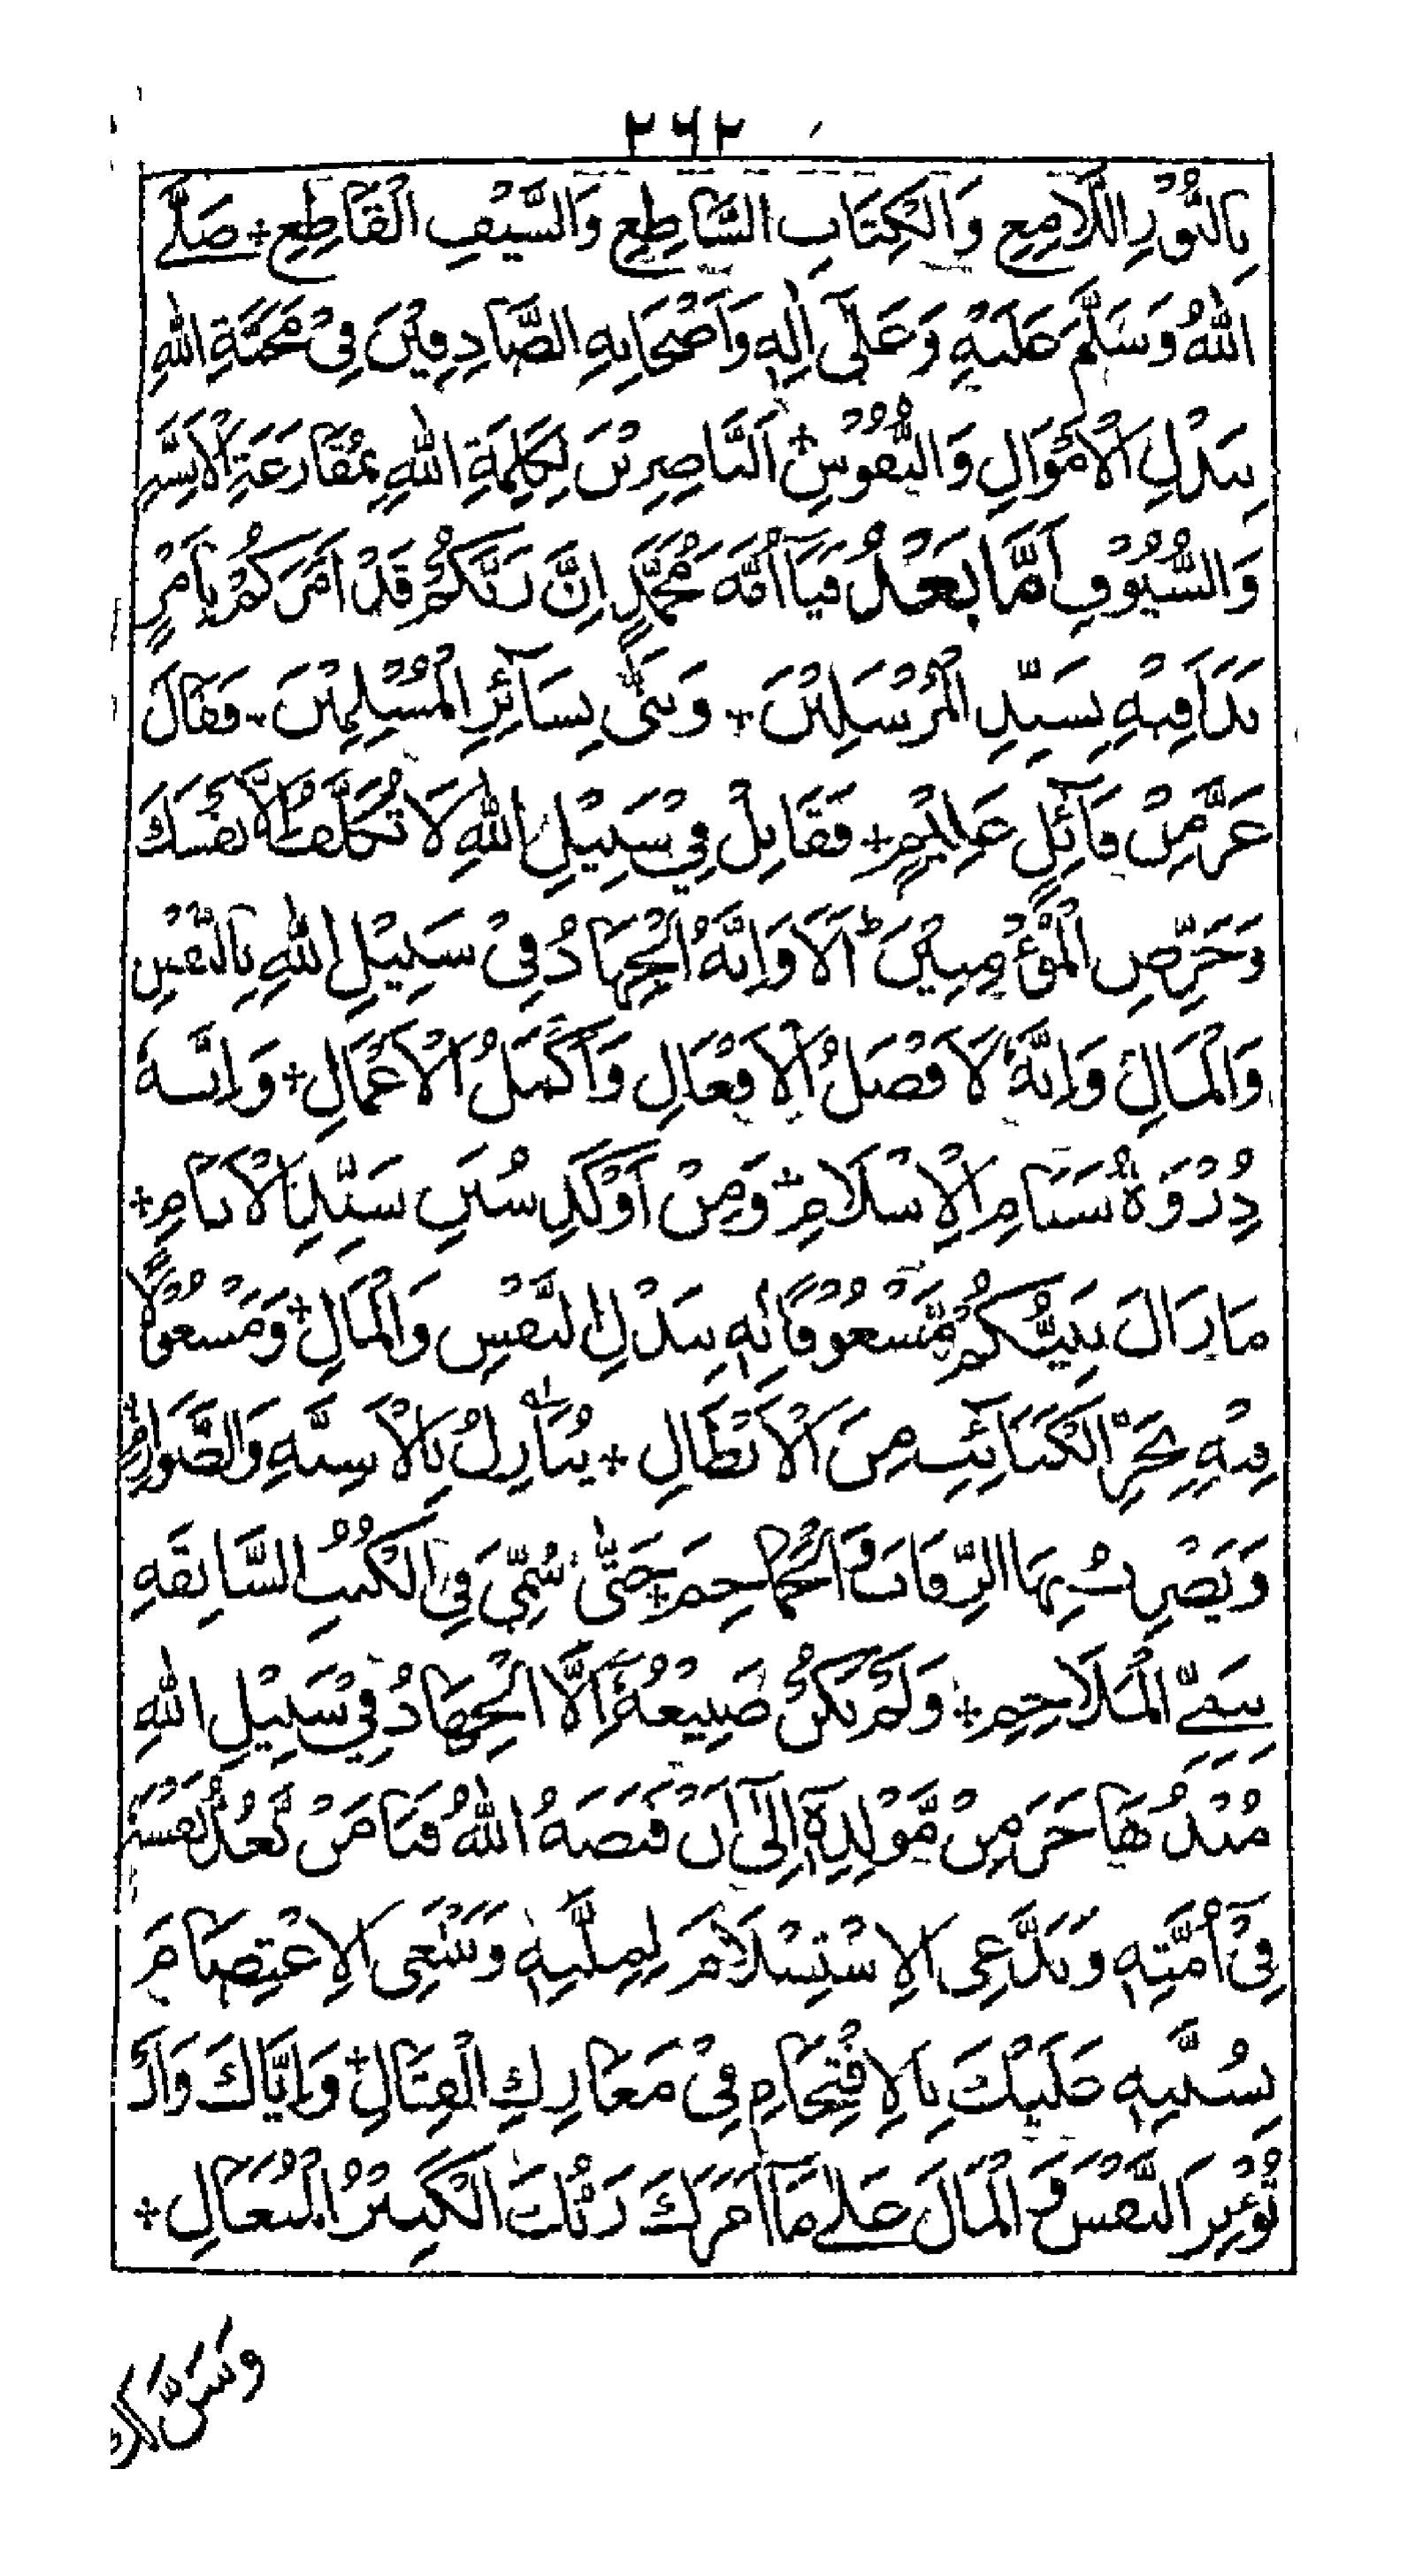 ٢٦٢
بِالنُّوْرِ اللَّامِعِ وَالْكِتَابِ السَّاطِعِ وَالسَّيْفِ الْقَاطِعِ + صَلَّے
اللّٰهُ وَسَلَّمَ عَلَيْهِ وَعَلٰٓى اٰلِهٖ وَاَصْحَابِهِ الصَّادِقِيْنَ فِىْ مَحَبَّةِ اللّٰهِ
بِبَذْلِ الْاَمْوَالِ وَالنُّفُوْسِ + اَلنَّاصِرِيْنَ لِكَلِمَةِ اللّٰهِ بِمُقَارَعَةِ الْاَسِنَّهِ
وَالسُّيُوْفِ اَمَّا بَعْدُ فَيَا اُمَّةَ مُحَمَّدٍ اِنَّ رَبَّكُمْ قَدْ اَمَرَكُمْ بِاَمْرٍ
بَدَاَ فِيْهِ بِسَيِّدِ الْمُرْسَلِيْنَ + وَثَنّٰى بِسَآئِرِ الْمُسْلِمِيْنَ - فَقَالَ
عَزَّ مِنْ قَآئِلٍ عَلِيْمٍ + فَقَاتِلْ فِيْ سَبِيْلِ اللّٰهِ لَا تُكَلَّفُ اِلَّا نَفْسَكَ
وَحَرِّضِ الْمُؤْمِنِيْنَ ط اَلَا وَاِنَّهُ الْجِهَادُ فِىْ سَبِيْلِ اللّٰهِ بِالنَّفْسِ
وَالْمَالِ وَاِنَّهٗ لَاَفْضَلُ الْاَفْعَالِ وَاَكْمَلُ الْاَعْمَالِ + وَاِنَّهٗ
ذِرْوَةُ سَنَامِ الْاِسْلَامِ + وَمِنْ اَوْكَدِ سُنَنِ سَيِّدِ الْاَنَامِ +
مَا زَالَ نَبِيُّكُمْ مَّشْعُوْفًا بِهٖ بِبَذْلِ النَّفْسِ وَالْمَالِ + وَمَشْغُوْلًا
فِيْهِ بِجَرِّ الْكَتَائِبِ مِنَ الْاَبْطَالِ + يُنَازِلُ بِالْاَسِنَّهِ وَالصَّوَارِمِ
وَيَضْرِبُ بِهَا الرِّقَابَ وَالْجَمَاجِمَ + حَتّٰى سُمِّيَ فِى الْكُتُبِ السَّابِقَهِ
نَبِيَّ الْمَلَاحِمِ + وَلَمْ يَكُنْ صَنِيْعُهٗ اِلَّا الْجِهَادُ فِيْ سَبِيْلِ اللّٰهِ
مُنْذُ هَاجَرَ مِنْ مَّوْلِدِهٖٓ اِلٰٓى اَنْ قَبَضَهُ اللّٰهُ فَيَا مَنْ يَّعُدُّ نَفْسَهٗ
فِىْٓ اُمَّتِهٖ وَيَدَّعِى الْاِسْتِسْلَامَ لِمِلَّتِهٖ وَيَنْتَغِى الْاِعْتِصَامَ
بِسُنَّتِهٖ عَلَيْكَ بِالْاِقْتِحَامِ فِىْ مَعَارِكِ الْقِتَالِ + وَاِيَّاكَ وَاَنْ
تُؤْثِرَ النَّفْسَ وَالْمَالَ عَلٰے مَآ اَمَرَكَ رَبُّكَ الْكَبِيْرُ الْمُتَعَالِ +